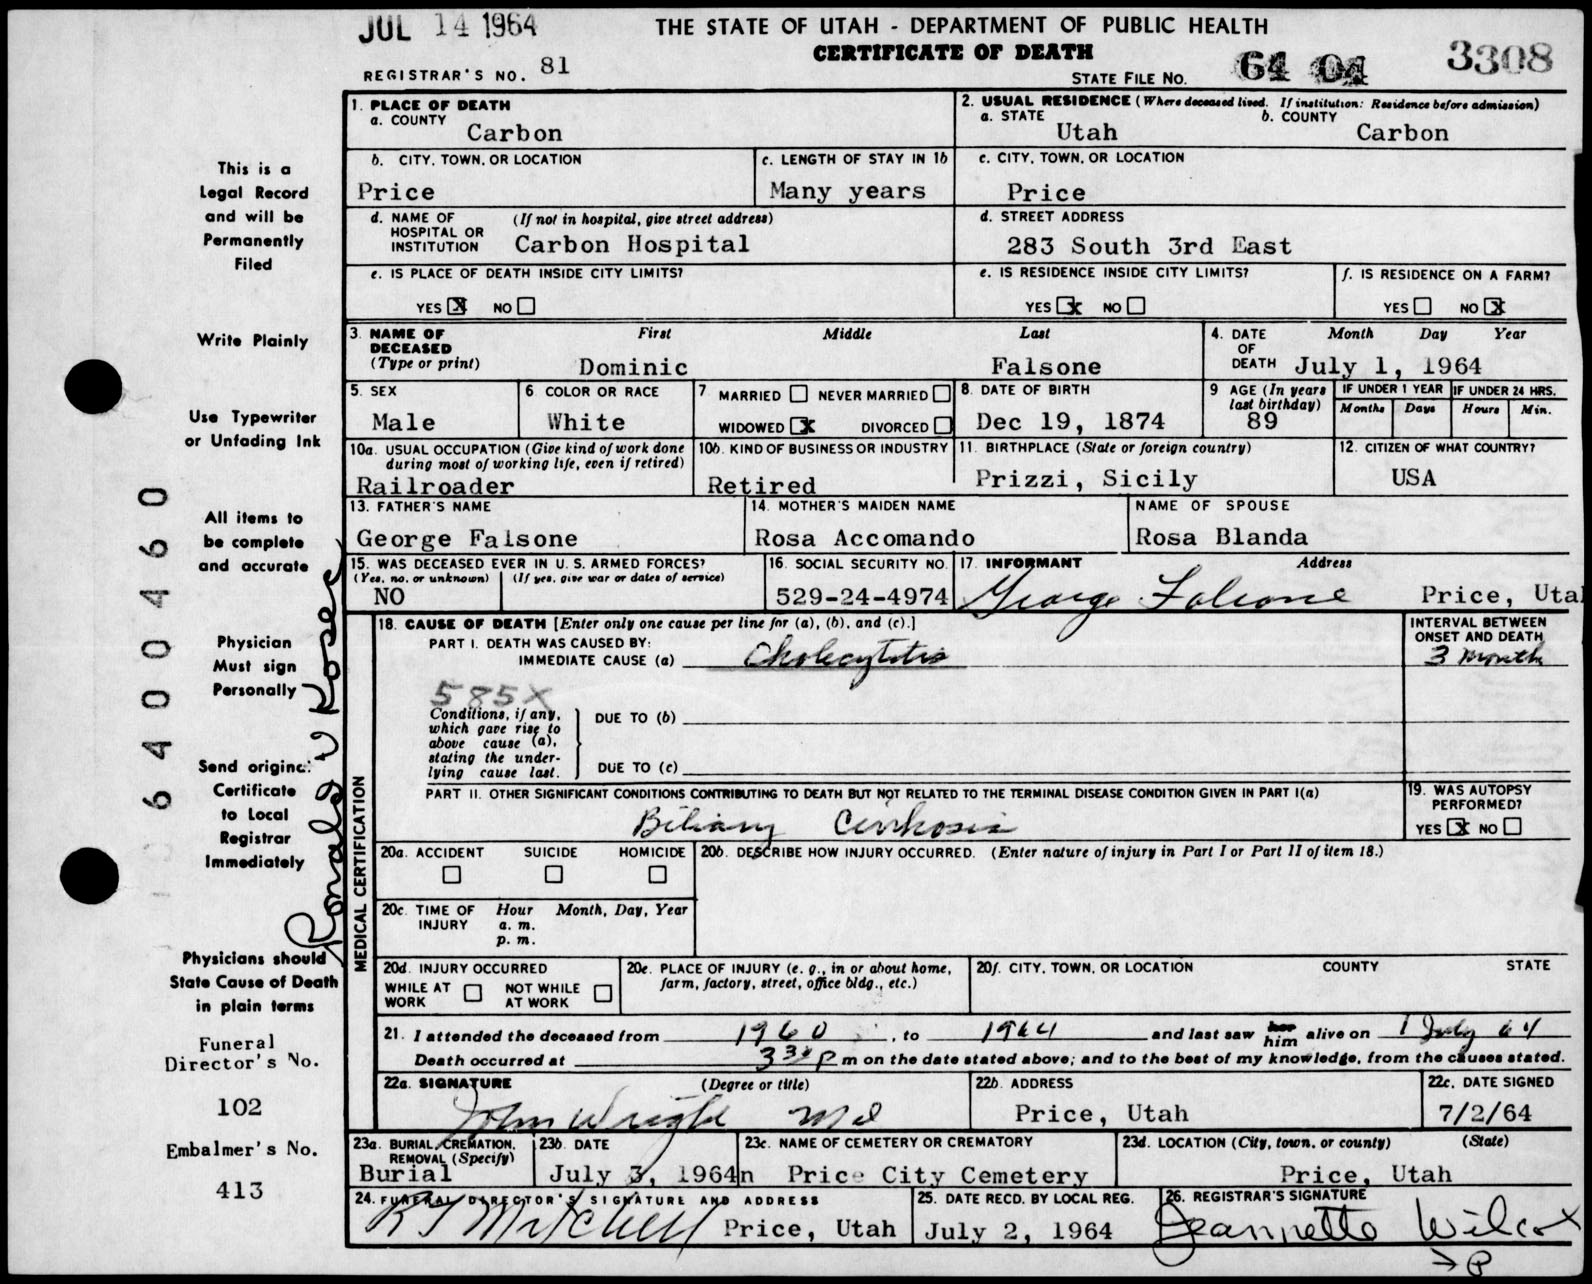 JUL 14 1964
THE STATE OF UTAH - DEPARTMENT OF PUBLIC HEALTH
CERTIFICATE OF DEATH
REGISTRAR'S NO. 81
STATE FILE NO. 64 04 3308
1. PLACE OF DEATH
a. COUNTY Carbon
2. USUAL RESIDENCE (Where deceased lived. If institution: Residence before admission)
a. STATE Utah b. COUNTY Carbon
b. CITY, TOWN, OR LOCATION Price
c. LENGTH OF STAY IN 1b Many years
c. CITY, TOWN, OR LOCATION Price
d. NAME OF HOSPITAL OR INSTITUTION (If not in hospital, give street address) Carbon Hospital
d. STREET ADDRESS 283 South 3rd East
e. IS PLACE OF DEATH INSIDE CITY LIMITS?
YES X NO
e. IS RESIDENCE INSIDE CITY LIMITS?
YES X NO
f. IS RESIDENCE ON A FARM?
YES NO X
3. NAME OF DECEASED (Type or print)
First Middle Last
Dominic Falsone
4. DATE OF DEATH Month Day Year
July 1, 1964
5. SEX Male
6 COLOR OR RACE White
7 MARRIED NEVER MARRIED
WIDOWED X DIVORCED
8. DATE OF BIRTH Dec 19, 1874
9 AGE (In years last birthday) 89
IF UNDER 1 YEAR Months Days
IF UNDER 24 HRS. Hours Min.
10a. USUAL OCCUPATION (Give kind of work done during most of working life, even if retired)
Railroader
10b. KIND OF BUSINESS OR INDUSTRY
Retired
11. BIRTHPLACE (State or foreign country)
Prizzi, Sicily
12. CITIZEN OF WHAT COUNTRY?
USA
13. FATHER'S NAME
George Falsone
14. MOTHER'S MAIDEN NAME
Rosa Accomando
NAME OF SPOUSE
Rosa Blanda
15. WAS DECEASED EVER IN U. S. ARMED FORCES?
(Yes, no, or unknown) (If yes, give war or dates of service)
NO
16. SOCIAL SECURITY NO.
529-24-4974
17. INFORMANT Address
George Falsone Price, Uta
MEDICAL CERTIFICATION
18. CAUSE OF DEATH [Enter only one cause per line for (a), (b), and (c).]
PART I. DEATH WAS CAUSED BY:
IMMEDIATE CAUSE (a) Cholecytitis
INTERVAL BETWEEN ONSET AND DEATH
3 months
585X
Conditions, if any, which gave rise to above cause (a), stating the underlying cause last.
DUE TO (b)
DUE TO (c)
PART II. OTHER SIGNIFICANT CONDITIONS CONTRIBUTING TO DEATH BUT NOT RELATED TO THE TERMINAL DISEASE CONDITION GIVEN IN PART I(a)
Biliary Cirrhosis
19. WAS AUTOPSY PERFORMED?
YES X NO
20a. ACCIDENT SUICIDE HOMICIDE
20b. DESCRIBE HOW INJURY OCCURRED. (Enter nature of injury in Part I or Part II of item 18.)
20c. TIME OF INJURY Hour Month, Day, Year
a. m.
p. m.
20d. INJURY OCCURRED
WHILE AT WORK NOT WHILE AT WORK
20e. PLACE OF INJURY (e. g., in or about home, farm, factory, street, office bldg., etc.)
20f. CITY, TOWN, OR LOCATION COUNTY STATE
21. I attended the deceased from 1960, to 1964 and last saw her him alive on 1 July 64
Death occurred at 3 30 P m on the date stated above; and to the best of my knowledge, from the causes stated.
22a. SIGNATURE (Degree or title)
John Wright Md
22b. ADDRESS
Price, Utah
22c. DATE SIGNED
7/2/64
23a. BURIAL, CREMATION, REMOVAL (Specify)
Burial
23b. DATE
July 3, 1964n
23c. NAME OF CEMETERY OR CREMATORY
Price City Cemetery
23d. LOCATION (City, town, or county) (State)
Price, Utah
24. FUNERAL DIRECTOR'S SIGNATURE AND ADDRESS
R J Mitchell Price, Utah
25. DATE RECD. BY LOCAL REG.
July 2, 1964
26. REGISTRAR'S SIGNATURE
Jeannette Wilcox
This is a
Legal Record
and will be
Permanently
Filed
Write Plainly
Use Typewriter
or Unfading Ink
All items to
be complete
and accurate
Physician
Must sign
Personally
Send original
Certificate
to Local
Registrar
Immediately
Physicians should
State Cause of Death
in plain terms
Funeral
Director's No.
102
Embalmer's No.
413
6400460
Ronald V Rose